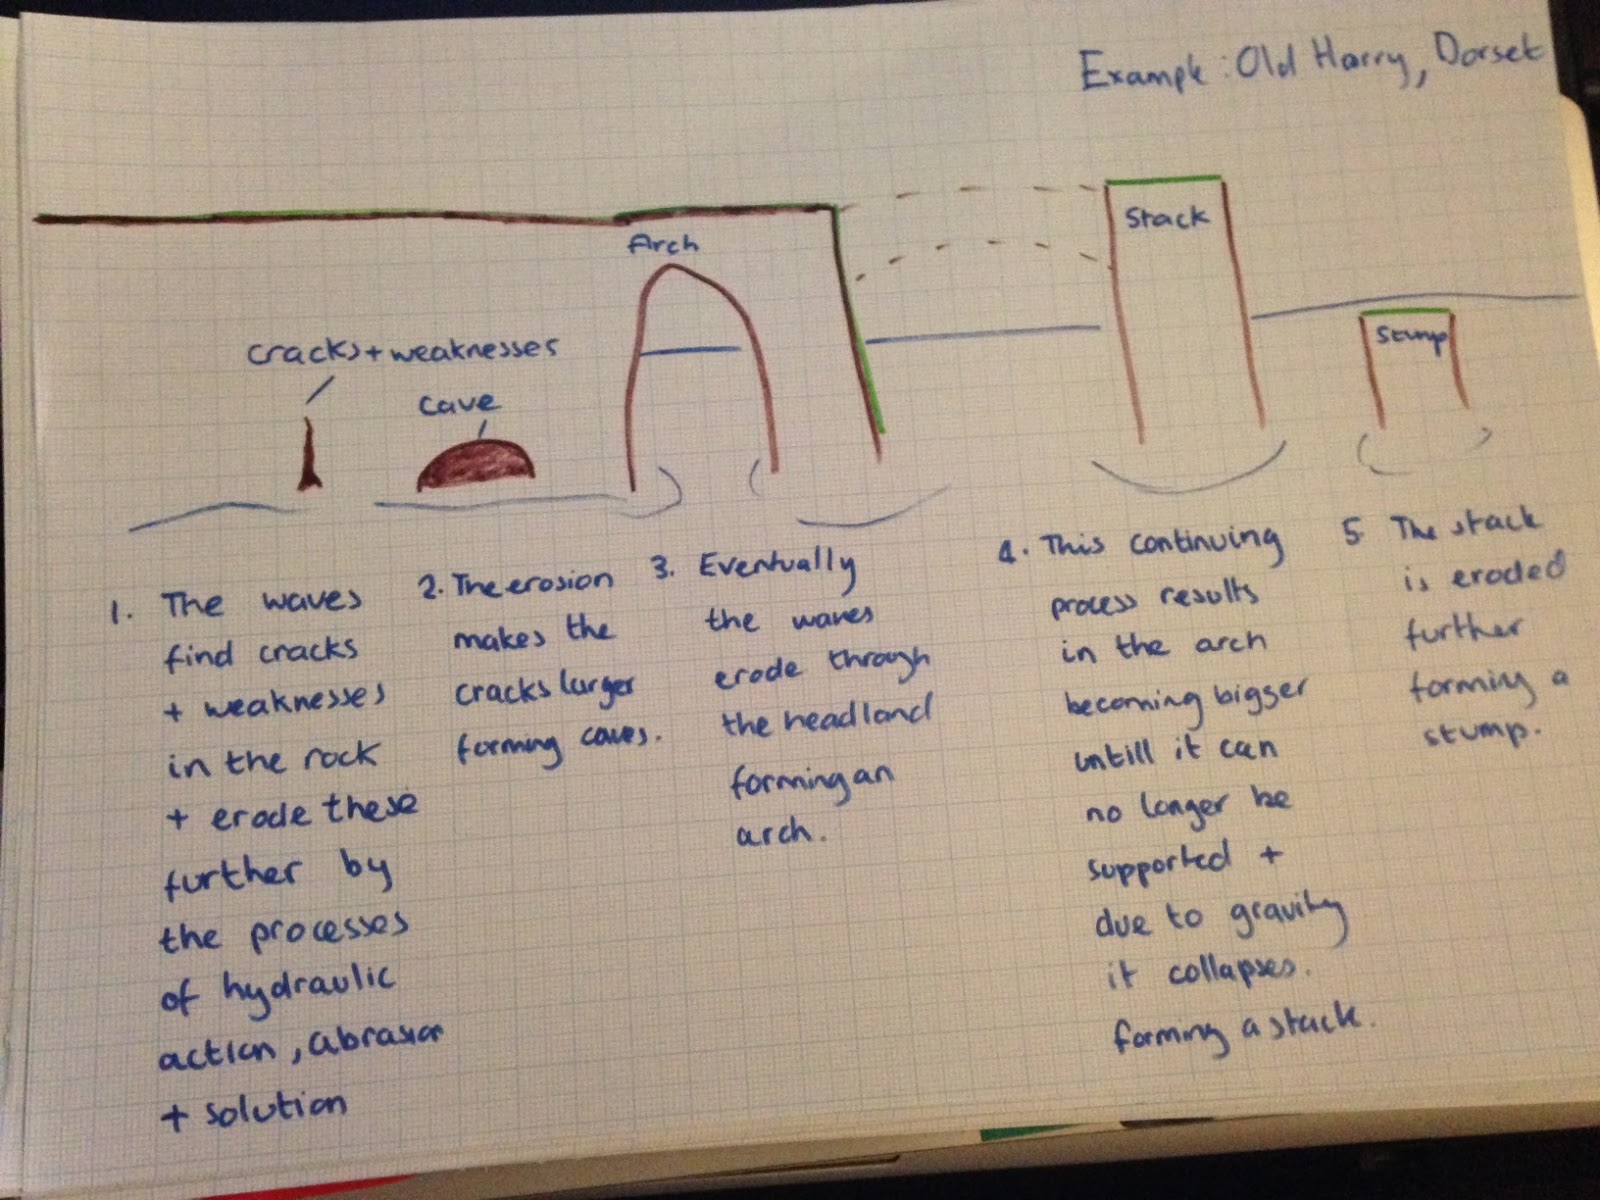 Example: Old Harry, Dorset
Arch
Stack
Stump
cracks + weaknesses
cave
1. The waves
find cracks
+ weaknesses
in the rock
+ erode these
further by
the processes
of hydraulic
action, abrasion
+ solution
2. The erosion
makes the
cracks larger
forming caves.
3. Eventually
the waves
erode through
the headland
forming an
arch.
4. This continuing
process results
in the arch
becoming bigger
untill it can
no longer be
supported +
due to gravity
it collapses.
forming a stack.
5. The stack
is eroded
further
forming a
stump.